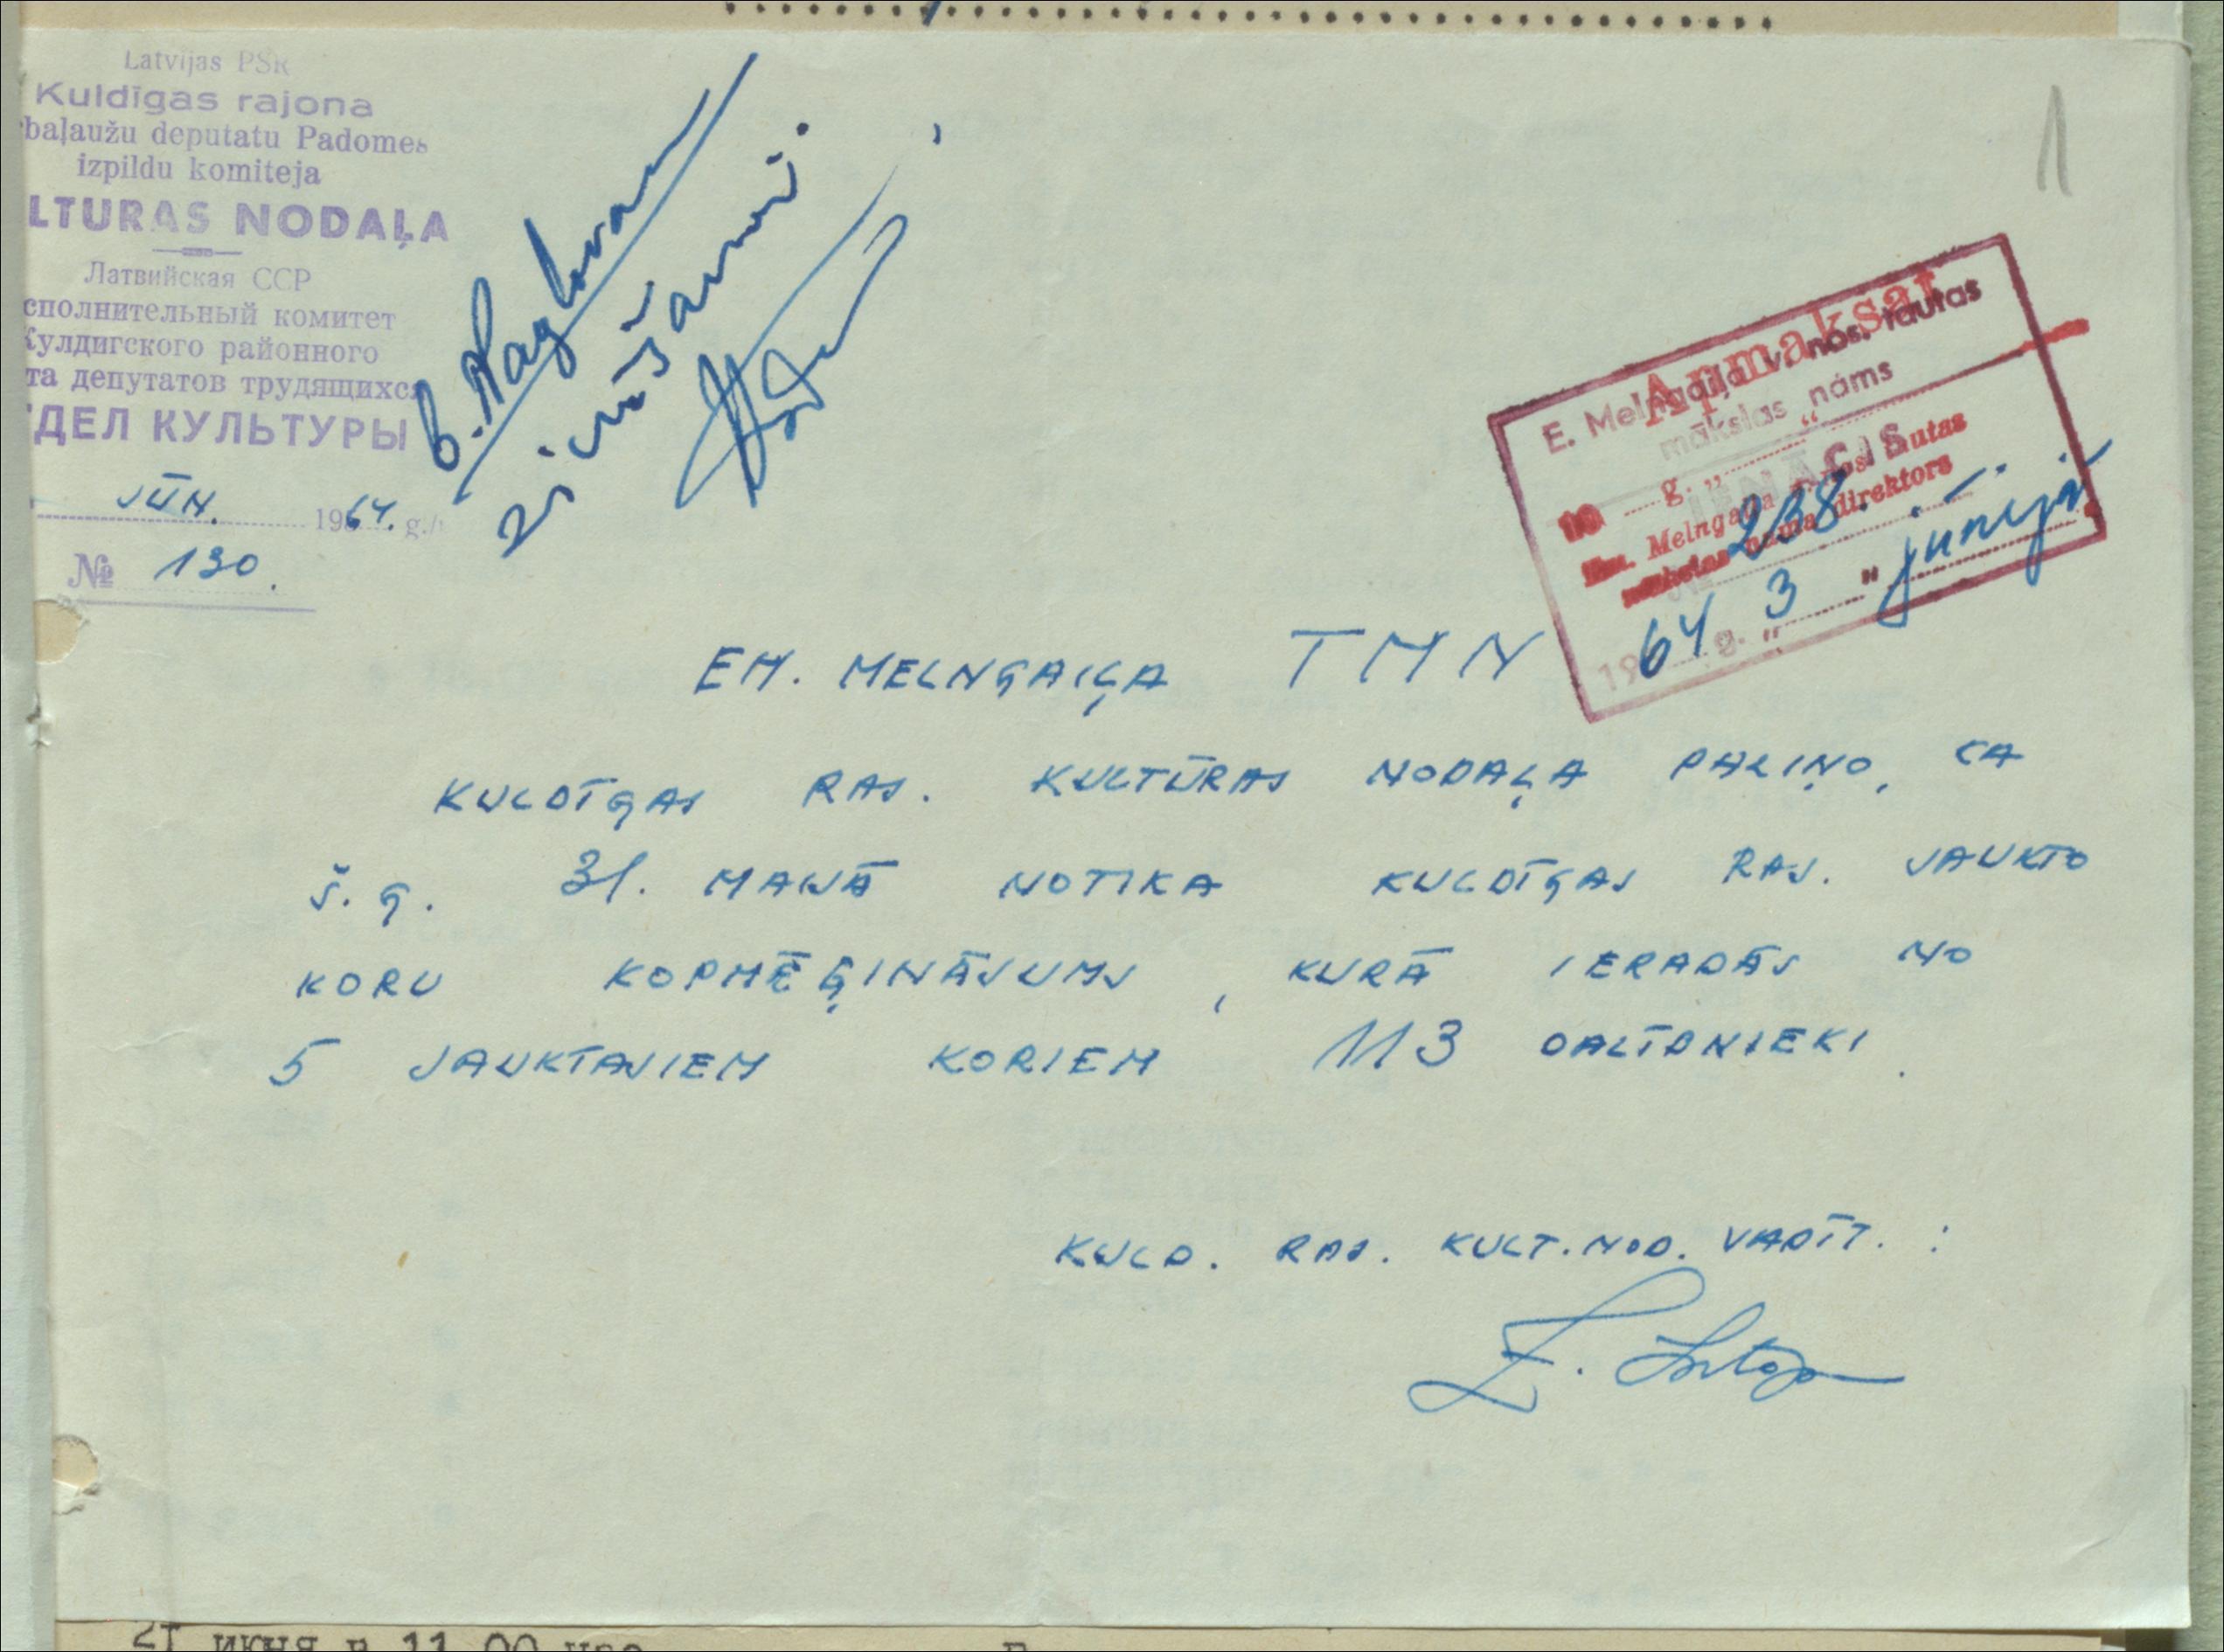 Latvijas PSR
Kuldīgas rajona
baļaužu deputatu Padomes
izpildu komiteja
LTURAS NODAĻA
Латвийская ССР
сполнительный комитет
Кулдигского районного
та депутатов трудящихся
ДЕЛ КУЛЬТУРЫ
JŪN. 1964. g./
№ 130.
zināšanai.
1
Apmaksāt
E. Melngaiļa v. nos. tautas
mākslas nams
IENĀCIS
19 g. „ “
Em. Melngaiļa v. nos tautas
mākslas nama direktors
238.
1964 g. „ 3 " jūnijā
EM. MELNGAIĻA TMN
KULDĪGAS RAJ. KULTŪRAS NODAĻA PAZIŅO, KA
Š.G. 31. MAIJĀ NOTIKA KULDĪGAS RAJ. JAUKTO
KORU KOPMĒĢINĀJUMS, KURĀ IERADĀS NO
5 JAUKTAJIEM KORIEM 113 DALĪBNIEKI.
KULD. RAJ. KULT. NOD. VADĪT. :
21 июня в 11.00